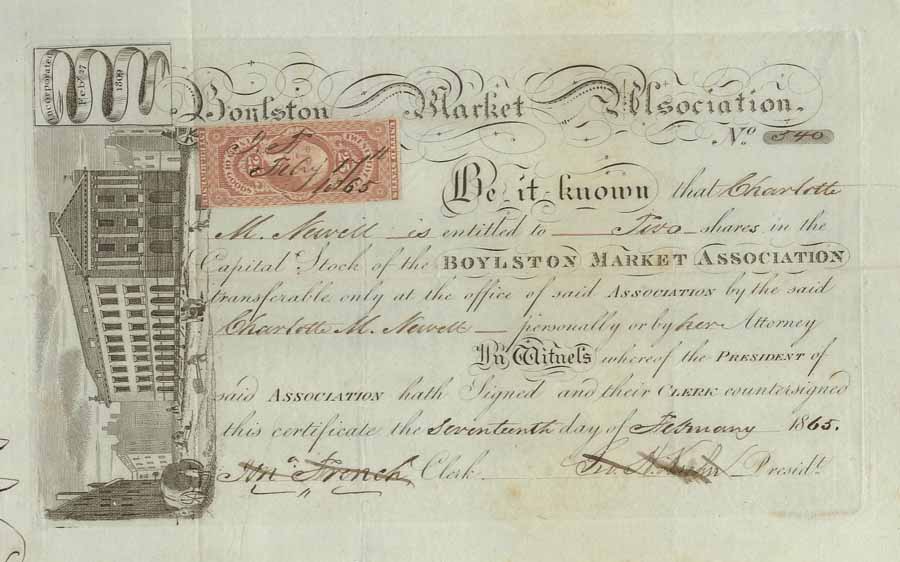 Incorporated
Feb. 27
1809
Boylston Market Association.
No. 340
J. F.
Feby 17th
1865
Be it known that Charlotte
M. Newell is entitled to Two shares in the
Capital Stock of the BOYLSTON MARKET ASSOCIATION
transferable only at the office of said ASSOCIATION by the said
Charlotte M. Newell personally or by her Attorney
In Witness whereof the PRESIDENT of
said ASSOCIATION hath Signed and their CLERK countersigned
this certificate the Seventeenth day of February 1865.
Jona French Clerk Presidt.